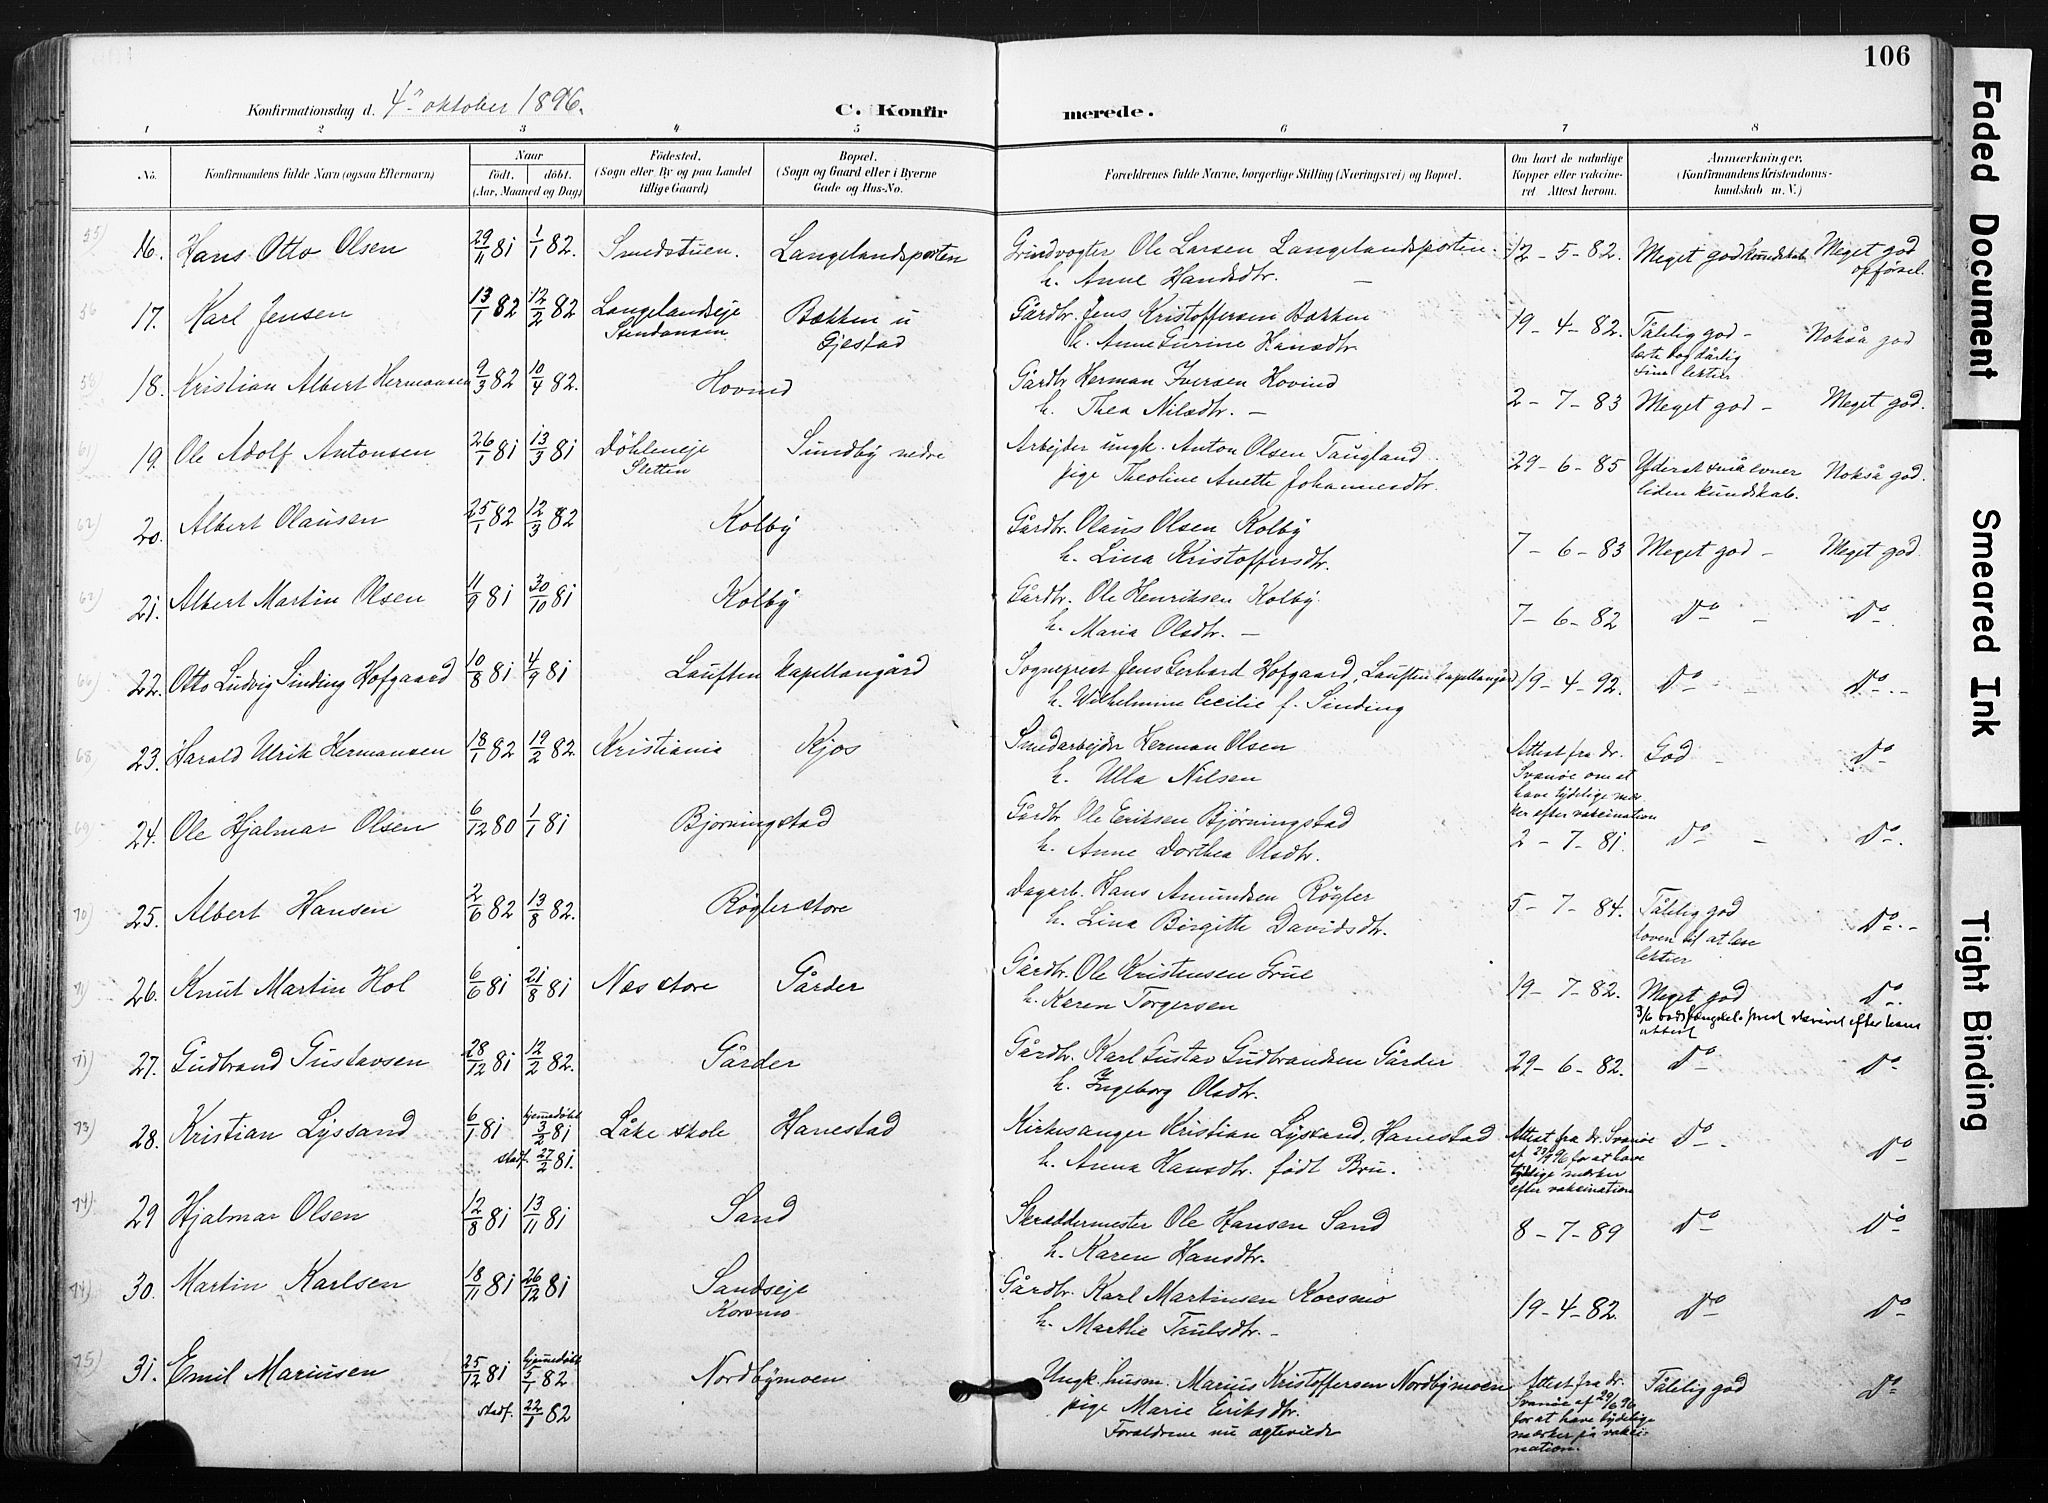 106
Konfirmationsdag d. 4de oktober 1896.
C. Konfirmerede.
1 2 3 4 5 6 7 8
No. Konfirmandens fulde Navn (ogsaa Efternavn) Naar født. døbt. (Aar, Maaned og Dag)
Fødested. (Sogn eller By og paa Landet tillige Gaard)
Bopæl. (Sogn og Gaard eller i Byerne Gade og Hus-No.
Forældrenes fulde Navne, borgerlige Stilling (Næringsvei) og Bopæl.
Om havt de naturlige Kopper eller vaccineret Attest herom.
Anmærkninger. (Konfirmandens Kristendomskundskab m. V.)
55 16. Hans Otto Olsen 29/11 81 1/1 82. Smedstuen. Langelandsporten Grindvogter Ole Larsen Langelandsporten. 12-5-82. Meget god kundskab Meget god opførsel.
h. Anne Hansdtr. —
56 17. Karl Jensen 13/1 82 12/2 82 Langelandseje Bækken u Gjestad Gårdbr. Jens Kristoffersen Bækken 19-4-82. Tålelig god - Nokså god
h. Anne Gurine Hansdtr.
læste dog dårlig sine lektier
58 18. Kristian Albert Hermansen 9/3 82 10/4 82. Hovind Gårdbr Herman Iversen Hovind
h. Thea Nilsdtr. — 2-7-83 Meget god - Meget god.
61) 19. Ole Adolf Antonsen 26/1 81 13/3 81 Döhleneje Sletten Sundby nedre Arbejder ungk. Anton Olsen Taugland
pige Theoline Anette Johannesdtr. 29-6-85 Yderst små evner liden kundskab. Nokså god.
62) 20. Albert Olausen 25/1 82 12/3 82 Kolby Gårdbr. Olaus Olsen Kolby
h. Lina Kristoffersdtr. 7-6-83 Meget god - Meget god.
62) 21. Albert Martin Olsen 11/9 81 30/10 81 Kolby Gårdbr. Ole Henriksen Kolby.
h. Maria Olsdtr. — 7-6-82 Do - Do.
66) 22. Otto Ludvig Sinding Hofgaard 10/8 81 4/9 81 Lauften kapellangård Sogneprest Jens Gerhard Hofgaard, Lauften kapellangård 19-4-92. Do - Do.-
h. Wilhelmine Cecilie f. Sinding
68) 23. Harald Ulrik Hermansen 18/1 82 19/2 82. Kristiania Kjos Smedarbejder Herman Olsen
h. Ulla Nilsen Attest fra dr. Svanøe om at have tydelige mærker efter vaksination God - Do
69) 24. Ole Hjalmar Olsen 6/12 80 1/1 81 Bjørningstad Gårdbr Ole Eriksen Bjørningstad
h. Anne Dorthea Olsdtr. 2-7-81. Do - Do.
70) 25. Albert Hansen 2/6 82 13/8 82. Røgler store Dagarb. Hans Amundsen Røgler
h. Lina Birgitte Davidsdtr. 5-7-84. Tålelig god Do.-
doven til at læse lektier
71) 26. Knut Martin Hol 6/6 81 21/8 81 Næs store Gårder Gårdbr. Ole Kristensen Grue
h. Karen Torgersen 19-7-82. Meget god Do.
71) 27. Gudbrand Gustavsen 28/12 81 12/2 82. Gårder Gårdbr. Karl Gustav Gudbrandsen Gårder
h. Ingeborg Olsdtr. 29-6-82. Do Do
73) 28. Kristian Lyssand 6/1 81 hjemmedøbt 3/2 81 stadf. 27/2 81. Låke skole Hanestad Kirkesanger Kristian Lyssand, Hanestad
h. Anna Hansdtr. født Bru. Attest fra dr. Svanøe af 29/9 96 for at have tydelige mærker efter vaksination Do - Do
74) 29 Hjalmar Olsen 12/8 81 13/11 81 Sand Skræddermester Ole Hansen Sand
h. Karen Hansdtr. 8-7-89 Do Do
74) 30. Martin Karlsen 18/11 81 26/12 81 Sandseje Korsmo Gårdbr. Karl Martinsen Korsmo
h. Marthe Trulsdtr. - 19-4-82. Do Do
75) 31. Emil Mariusen 25/12 81 hjemmedøbt 5/1 82 stadf. 22/1 82 Nordbymoen Ungk. husm. Marius Kristoffersen Nordbymoen
pige Marie Eriksdtr.
Forældrene nu ægteviede Attest fra dr. Svanøe af 29/6 96 for at have tydelige mærker på vaksination. Tålelig god Do
Faded Document
Smeared Ink
Tight Binding